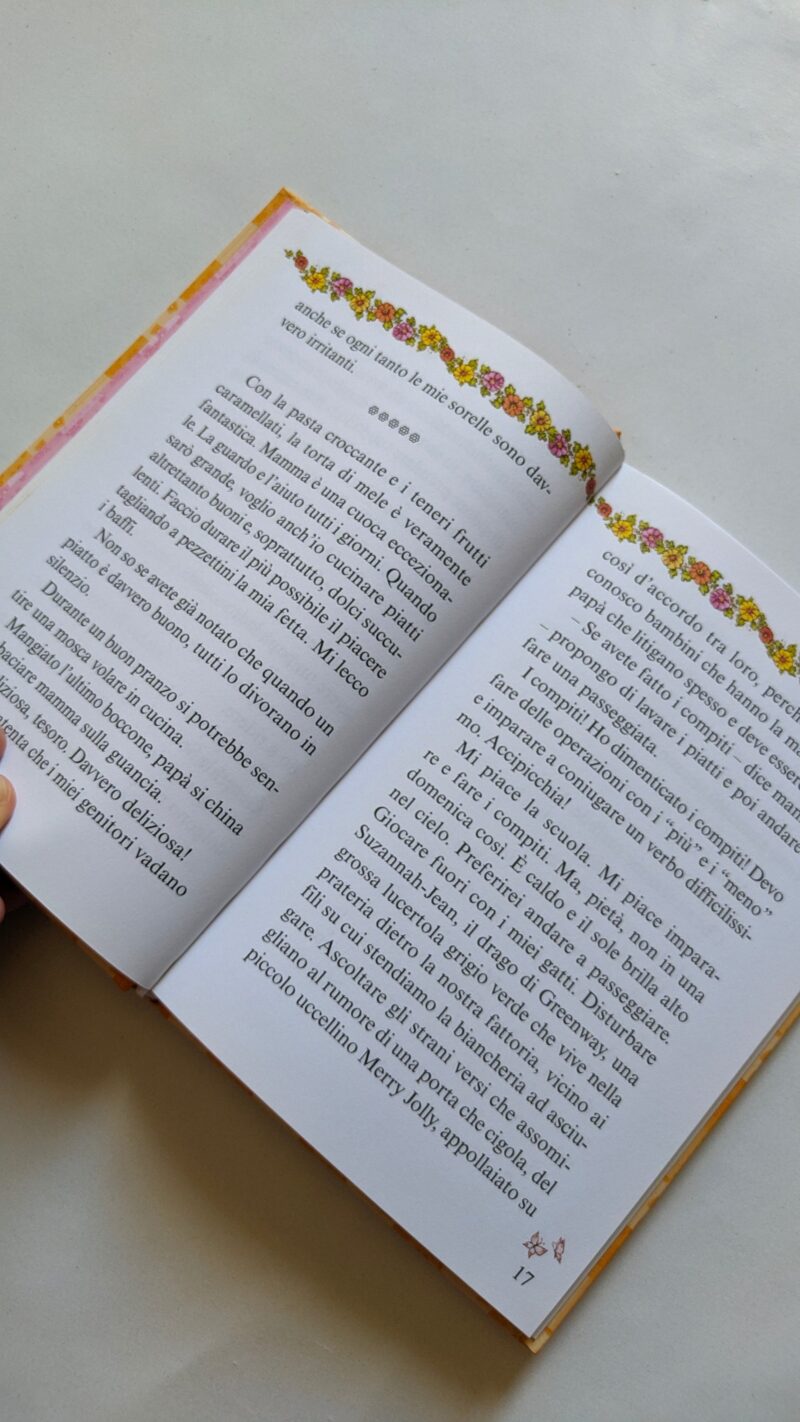 anche se ogni tanto le mie sorelle sono dav-
vero irritanti.
Con la pasta croccante e i teneri frutti
caramellati, la torta di mele è veramente
fantastica. Mamma è una cuoca ecceziona-
le. La guardo e l'aiuto tutti i giorni. Quando
sarò grande, voglio anch'io cucinare piatti
altrettanto buoni e, soprattutto, dolci succu-
lenti. Faccio durare il più possibile il piacere
tagliando a pezzettini la mia fetta. Mi lecco
i baffi.
Non so se avete già notato che quando un
piatto è davvero buono, tutti lo divorano in
silenzio.
Durante un buon pranzo si potrebbe sen-
tire una mosca volare in cucina.
Mangiato l'ultimo boccone, papà si china
baciare mamma sulla guancia.
tesoro. Davvero deliziosa!
che i miei genitori vadano
così d'accordo tra loro, perch
conosco bambini che hanno la
papà che litigano spesso e deve
– Se avete fatto i compiti – dice
– propongo di lavare i piatti e poi andare
fare una passeggiata.
I compiti! Ho dimenticato i compiti! Devo
fare delle operazioni con i “più” e i “meno”
e imparare a coniugare un verbo difficilissi-
mo. Accipicchia!
Mi piace la scuola. Mi piace impara-
re e fare i compiti. Ma, pietà, non in una
domenica così. È caldo e il sole brilla alto
nel cielo. Preferirei andare a passeggiare.
Giocare fuori con i miei gatti. Disturbare
Suzannah-Jean, il drago di Greenway, una
grossa lucertola grigio verde che vive nella
prateria dietro la nostra fattoria, vicino ai
fili su cui stendiamo la biancheria ad asciu-
gare. Ascoltare gli strani versi che assomi-
gliano al rumore di una porta che cigola, del
piccolo uccellino Merry Jolly, appollaiato su
17